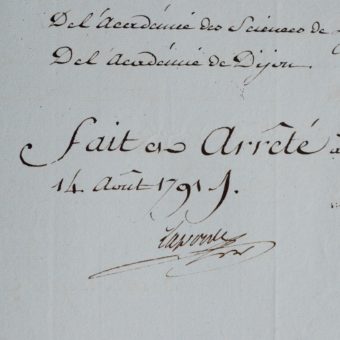 De l'Académie des Sciences de
De l'Académie de Dijon.
Fait et Arrêté
14 Août 1791.
Laporte